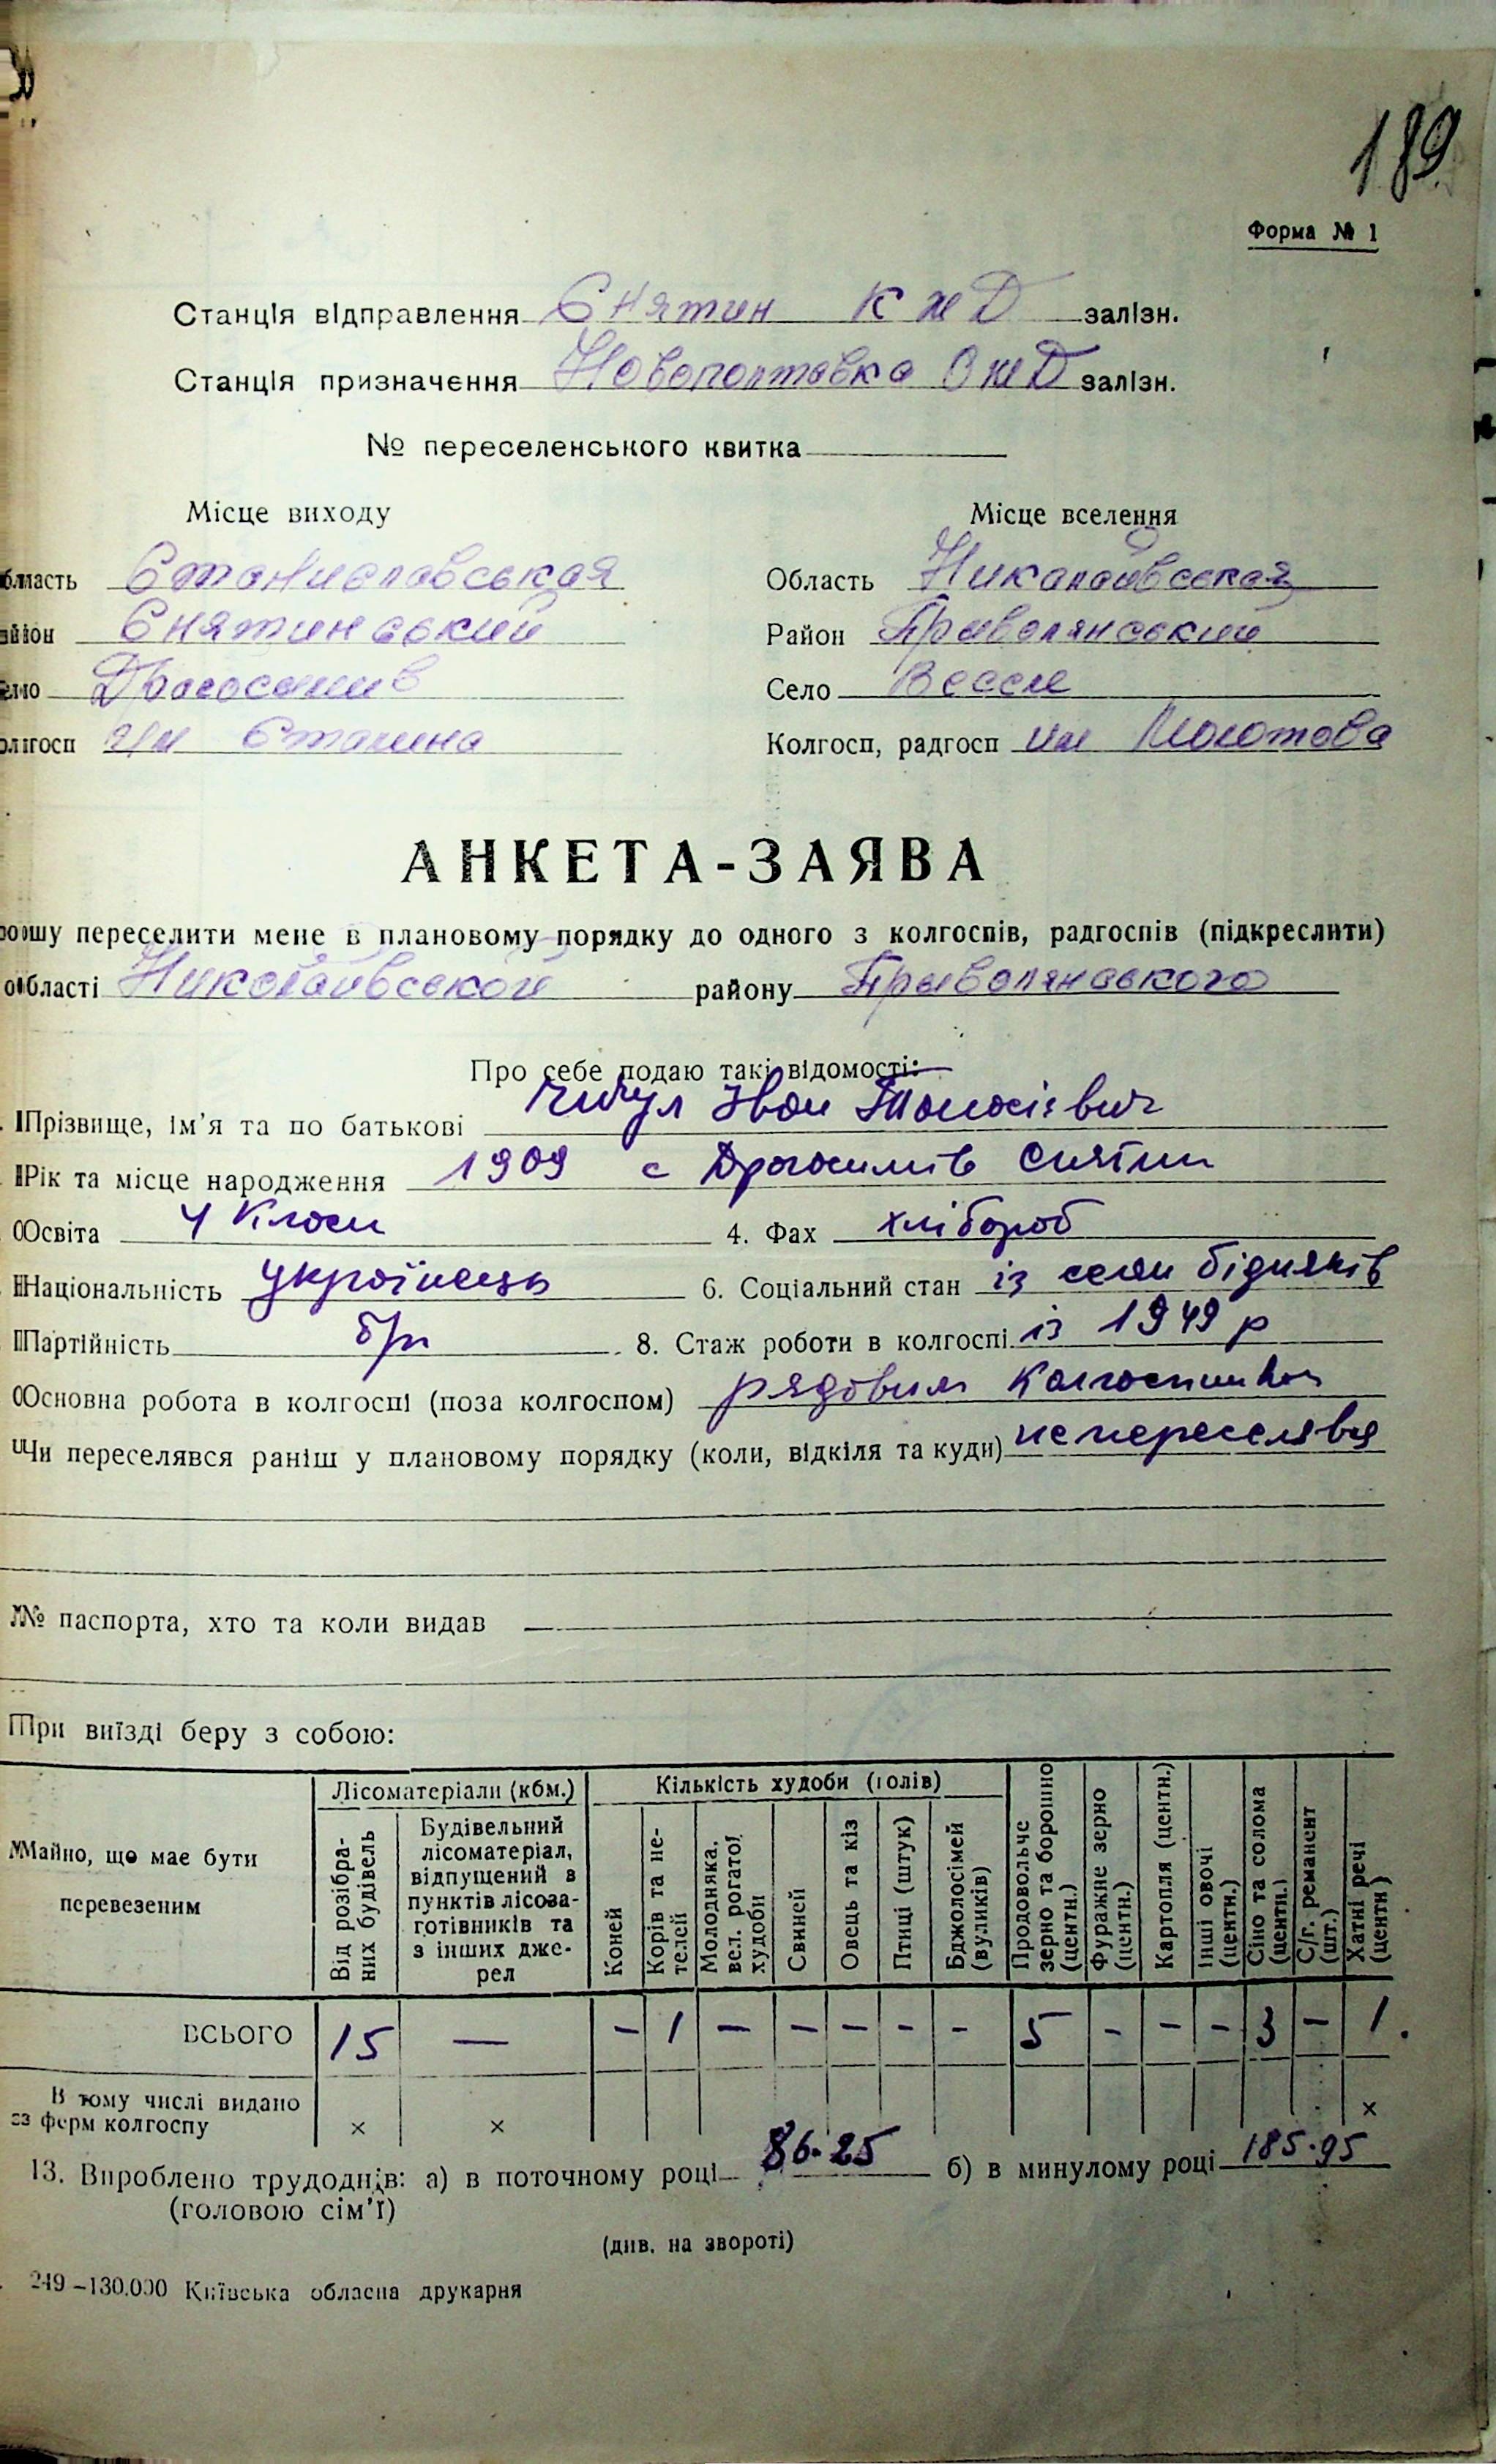 189
Форма № 1
Станція відправлення Снятин К ж Д залізн.
Станція призначення Новополтавка О ж Д залізн.
№ переселенського квитка
Місце виходу Місце вселення
бласть Станиславськая Область Николаївская
айон Снятинський Район Привольянський
ело Драгосимів Село Веселе
олгосп Им Сталина Колгосп, радгосп им Молотова
АНКЕТА-ЗАЯВА
рошу переселити мене в плановому порядку до одного з колгоспів, радгоспів (підкреслити)
області Николаївської району Привольянського
Про себе подаю такі відомості:
Прізвище, ім'я та по батькові Іван
Рік та місце народження 1909 с Драгосимів Снятин
Освіта 4 Класи 4. Фах хлібороб
Національність українець 6. Соціальний стан із селян бідняків
Партійність б/п 8. Стаж роботи в колгоспі із 1949 р
Основна робота в колгоспі (поза колгоспом) рядовим колгоспником
Чи переселявся раніш у плановому порядку (коли, відкіля та куди) не переселявся
№ паспорта, хто та коли видав
При виїзді беру з собою:
Майно, що має бути перевезеним
Лісоматеріали (кбм.)
Від розібраних будівель
Будівельний лісоматеріал, відпущений в пунктів лісозаготівників та з інших джерел
Кількість худоби (голів)
Коней
Корів та нетелей
Молодняка, вел. рогатої худоби
Свиней
Овець та кіз
Птиці (штук)
Бджолосімей (вуликів)
Продовольче зерно та борошно (центн.)
Фуражне зерно (центн.)
Картопля (центн.)
Інші овочі (центн.)
Сіно та солома (центн.)
С/г. реманент (шт.)
Хатні речі (центн)
ВСЬОГО 15 — - 1 — — — - - 5 - - - 3 - 1.
В тому числі видано
з ферм колгоспу × × ×
13. Вироблено трудоднів: а) в поточному році 86.25 б) в минулому році 185.95
(головою сім'ї)
(див. на звороті)
249–130.000 Київська обласна друкарня